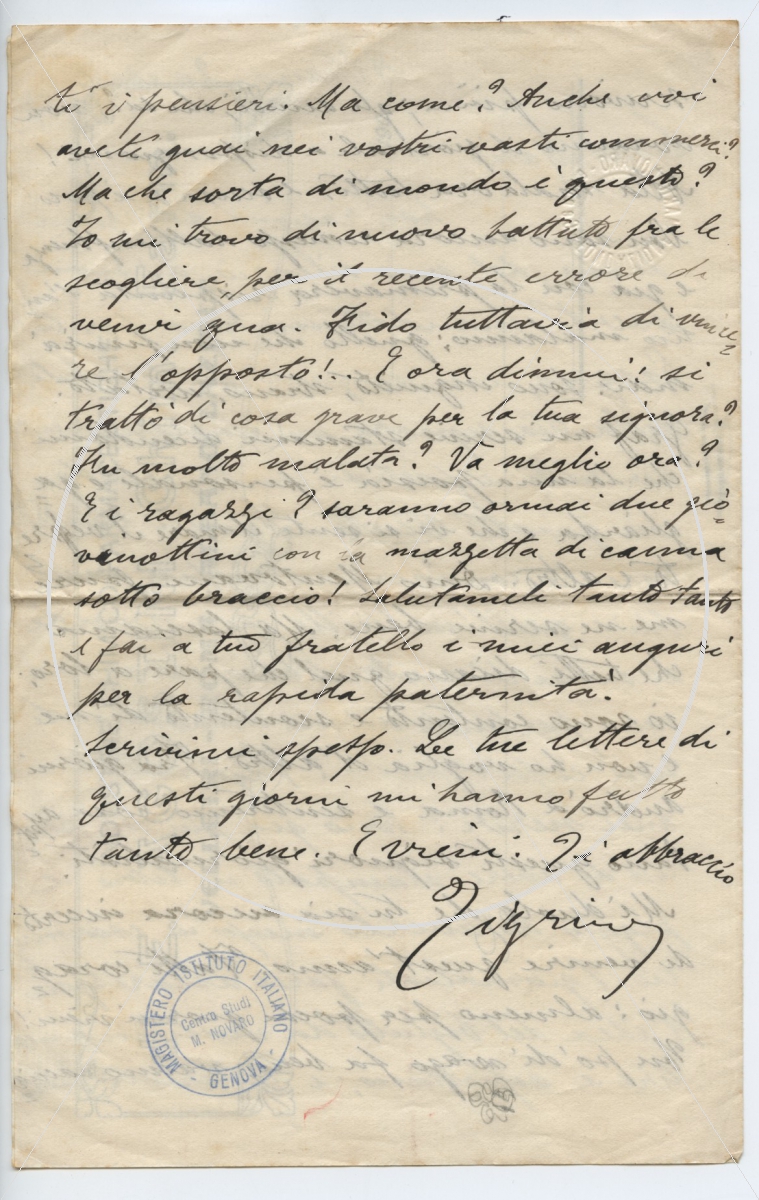 ti i pensieri. Ma come? Anche voi
avete guai nei vostri vasti commerci?
Ma che sorta di mondo è questo?
Io mi trovo di nuovo battuto fra le
scogliere, per il recente errore di
venir qua. Fido tuttavia di vince=
re l'opposto!.. E ora dimmi! si
trattò di cosa grave per la tua signora?
Fu molto malata? Va meglio ora?
E i ragazzi? saranno ormai due gio=
vinottini con la mazzetta di canna
sotto braccio! Salutameli tanto tanto
e fai a tuo fratello i miei auguri
per la rapida paternità.
Scrivimi spesso. Le tue lettere di
questi giorni mi hanno fatto
tanto bene. E vieni. Ti abbraccio
MAGISTERO ISTITUTO ITALIANO
Centro Studi
M. NOVARO
- GENOVA -